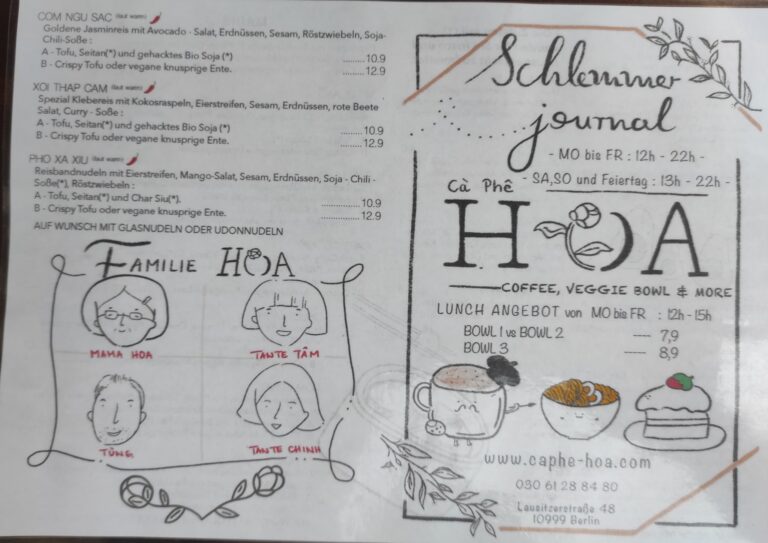 COM NGU SAC (laut warm)
Goldene Jasminreis mit Avocado - Salat, Erdnüssen, Sesam, Röstzwiebeln, Soja-
Chili-Soße :
A - Tofu, Seitan(*) und gehacktes Bio Soja (*) ......... 10.9
B - Crispy Tofu oder vegane knusprige Ente. ............... 12.9
XOI THAP CAM (laut warm)
Spezial Klebereis mit Kokosraspeln, Eierstreifen, Sesam, Erdnüssen, rote Beete
Salat, Curry - Soße :
A - Tofu, Seitan(*) und gehacktes Bio Soja (*) ......... 10.9
B - Crispy Tofu oder vegane knusprige Ente. ............... 12.9
PHO XA XIU (laut warm)
Reisbandnudeln mit Eierstreifen, Mango-Salat, Sesam, Erdnüssen, Soja - Chili -
Soße(*), Röstzwiebeln :
A - Tofu, Seitan(*) und Char Siu(*). .............. 10.9
B - Crispy Tofu oder vegane knusprige Ente. ............... 12.9
AUF WUNSCH MIT GLASNUDELN ODER UDONNUDELN
FAMILIE HOA
MAMA HOA
TANTE TÂM
TÙNG
TANTE CHINH
Schlemmer
journal
- MO bis FR : 12h - 22h -
- SA,SO und Feiertag : 13h - 22h -
Cà Phê
HOA
COFFEE, VEGGIE BOWL & MORE
LUNCH ANGEBOT von MO bis FR : 12h - 15h
BOWL 1 vs BOWL 2 ---- 7,9
BOWL 3 ---- 8,9
www.caphe-hoa.com
030 61 28 84 80
Lausitzerstraße 48
10999 Berlin